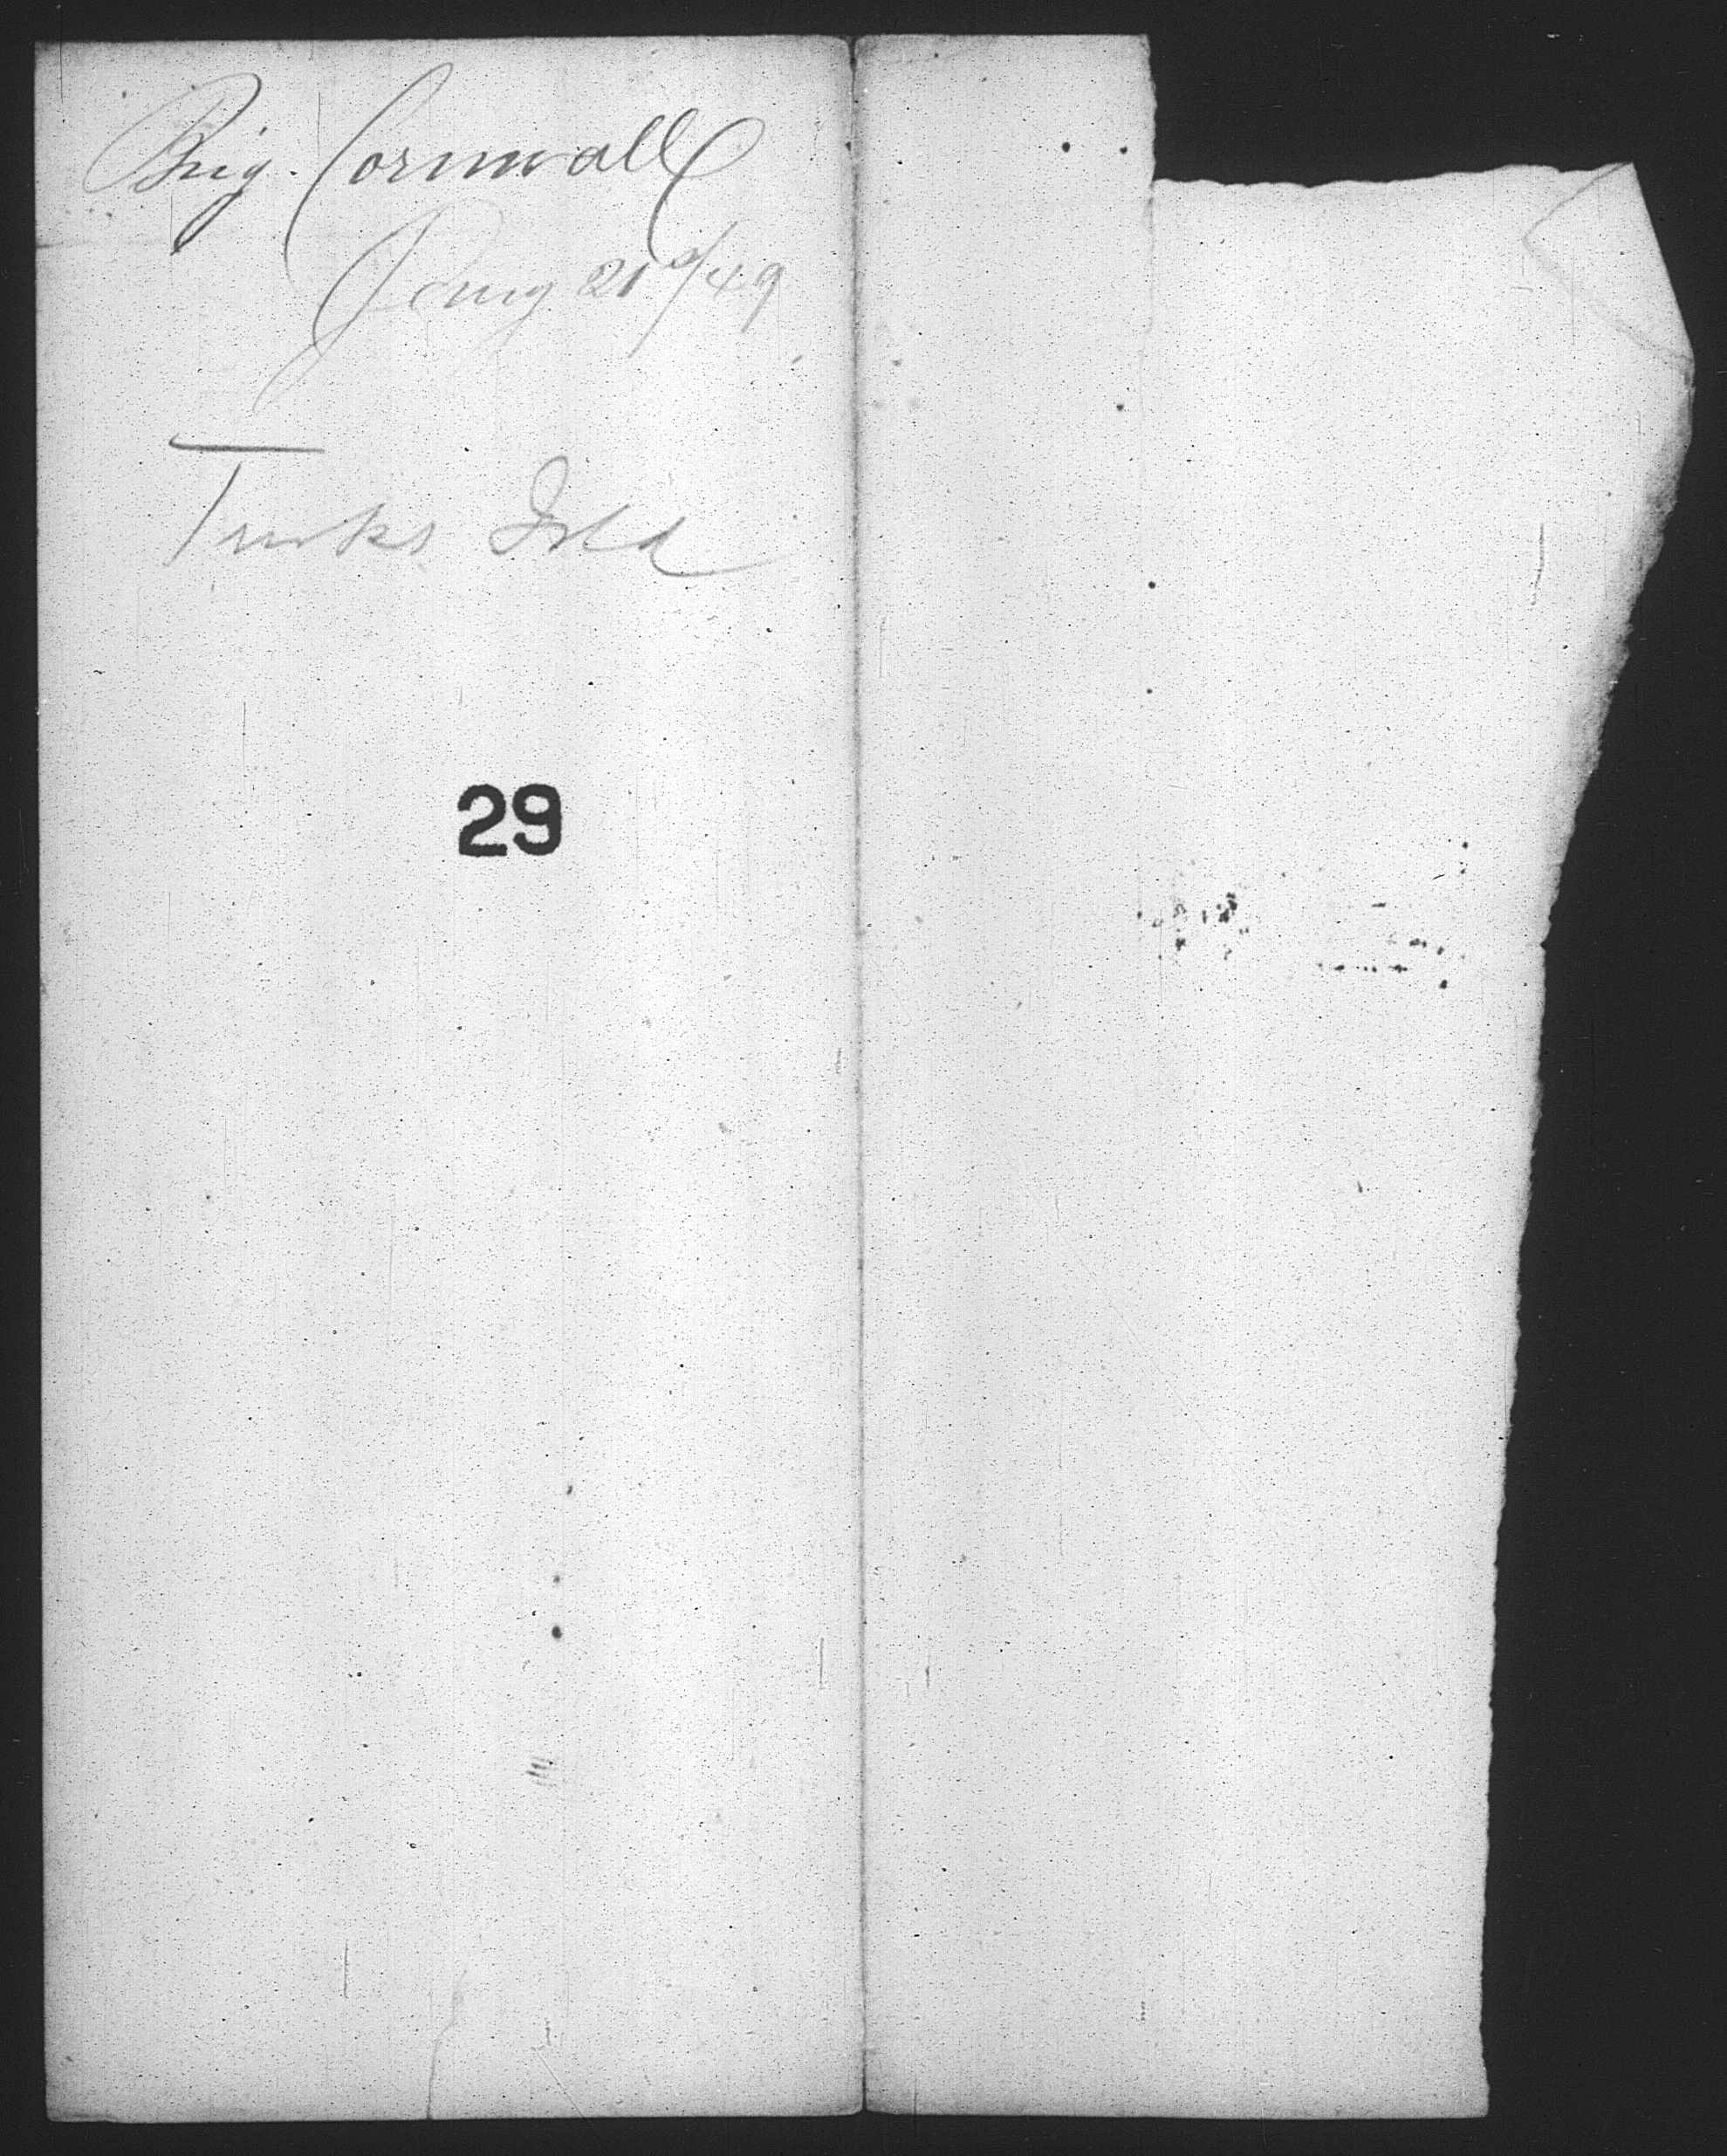 Brig. Cornwall
Jany 21st/49
Turks Isld
29